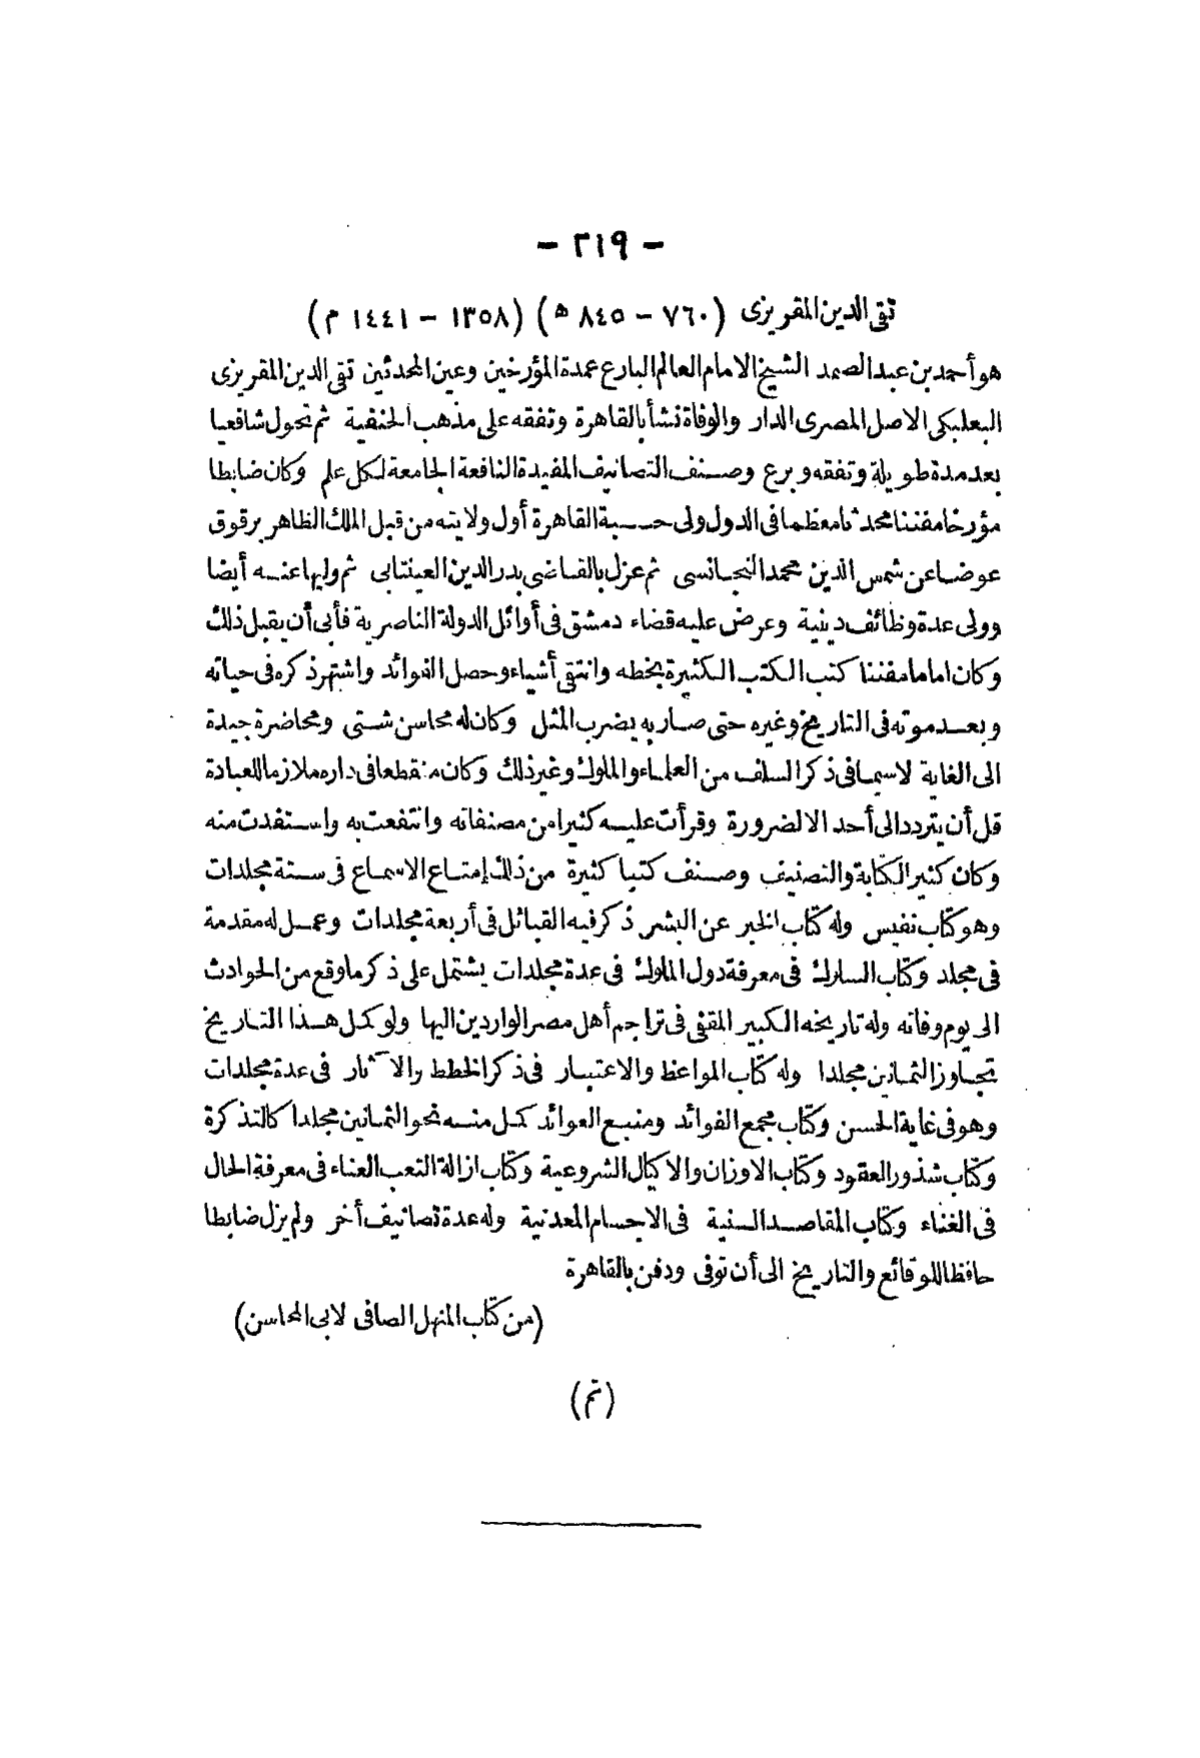 - ٢١٩ -
تقى الدين المقريزى (٧٦٠ - ٨٤٥ ه) (١٣٥٨ - ١٤٤١ م)
هو أحمد بن عبد الصمد الشيخ الامام العالم البارع عمدة المؤرخين وعين المحدثين تقى الدين المقريزى
البعلبكى الاصل المصرى الدار والوفاة نشأ بالقاهرة وتفقه على مذهب الحنفية ثم تحول شافعيا
بعد مدة طويلة وتفقه وبرع وصنف التصانيف المفيدة النافعة الجامعة لكل علم وكان ضابطا
مؤرخا مفننا محدثا معظما فى الدول ولى حسبة القاهرة أول ولايته من قبل الملك الظاهر برقوق
عوضا عن شمس الدين محمد النجانسى ثم عزل بالقاضى بدر الدين العينتابى ثم وليها عنه أيضا
وولى عدة وظائف دينية وعرض عليه قضاء دمشق فى أوائل الدولة الناصرية فأبى أن يقبل ذلك
وكان اماما مفننا كتب الكتب الكثيرة بخطه وانتقى أشياء وحصل الفوائد واشتهر ذكره فى حياته
وبعد موته فى التاريخ وغيره حتى صار به يضرب المثل وكان له محاسن شتى ومحاضرة جيدة
الى الغاية لاسيما فى ذكر السلف من العلماء والملوك وغير ذلك وكان منقطعا فى داره ملازما للعبادة
قل أن يتردد الى أحد الا لضرورة وقرأت عليه كثيرا من مصنفاته وانتفعت به واستفدت منه
وكان كثير الكتابة والتصنيف وصنف كتبا كثيرة من ذلك إمتاع الاسماع فى ستة مجلدات
وهو كتاب نفيس وله كتاب الخبر عن البشر ذكر فيه القبائل فى أربعة مجلدات وعمل له مقدمة
فى مجلد وكتاب السلوك فى معرفة دول الملوك فى عدة مجلدات يشتمل على ذكر ما وقع من الحوادث
الى يوم وفاته وله تاريخه الكبير المقفى فى تراجم أهل مصر الواردين اليها ولو كمل هذا التاريخ
تجاوز الثمانين مجلدا وله كتاب المواعظ والاعتبار فى ذكر الخطط والآثار فى عدة مجلدات
وهو فى غاية الحسن وكتاب مجمع الفوائد ومنبع العوائد كمل منه نحو الثمانين مجلدا كالتذكرة
وكتاب شذور العقود وكتاب الاوزان والاكيال الشروعية وكتاب ازالة التعب العناء فى معرفة الحال
فى الغناء وكتاب المقاصد السنية فى الاجسام المعدنية وله عدة تصانيف أخر ولم يزل ضابطا
حافظا للوقائع والتاريخ الى أن توفى ودفن بالقاهرة
(من كتاب المنهل الصافى لابى المحاسن)
(تم)